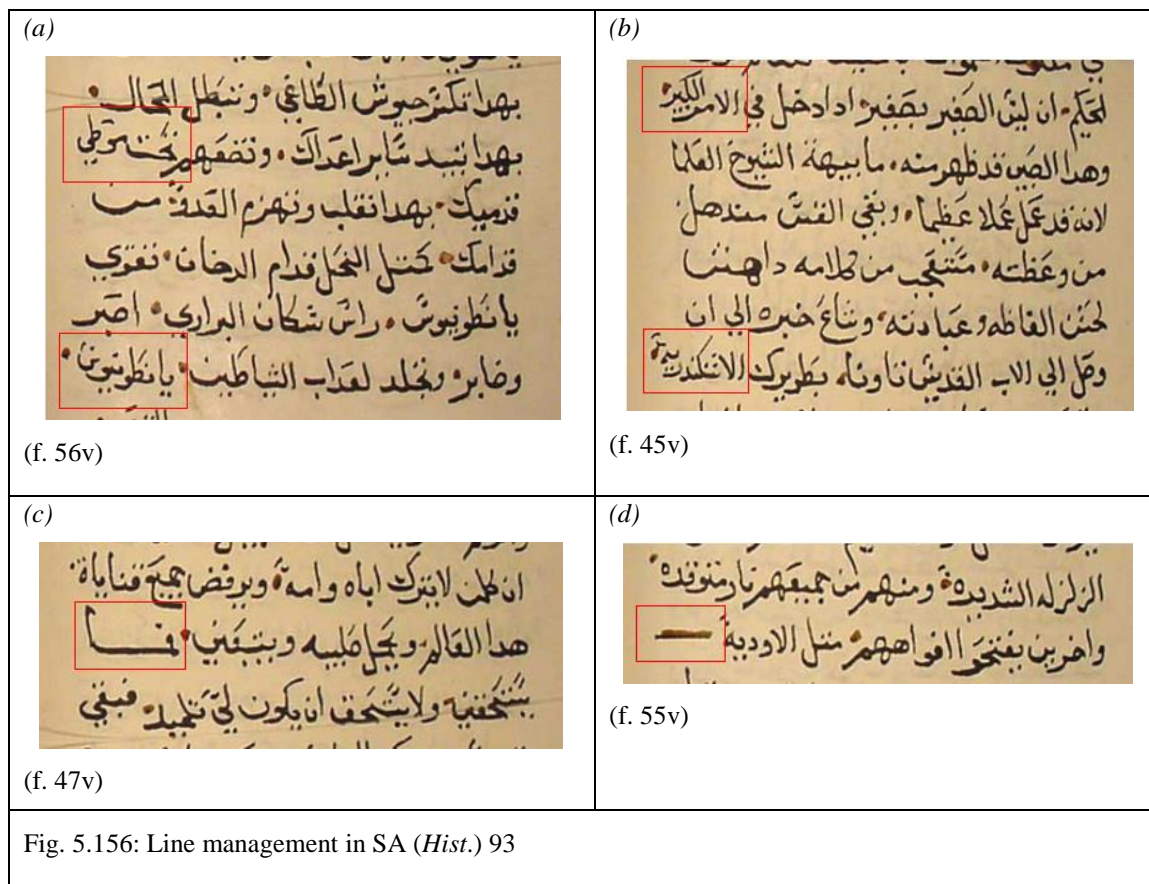 (a)
بهدا تكتر جيوش الطاغي • وتبطل المحال •
بهدا تبيد ساير اعداك • وتضعهم تحت موطي
قدميك • بهدا تغلب وتهزم القدة من
قدامك • كمتل النحل قدام الدخان • تقوي
يا نطونيوس • راس سكان البراري • اصبر
وصابر • وتجلد لعداب الشياطين • يا نطونيوس •
(f. 56v)
(b)
الحكيم • ان ليس الصغير بصغير ادا دخل في الامر الكبير •
وهدا الصبي قد ظهر منه • ما يبهة الشيوخ العلما
لانه قد عمل عملا عظيما • وبقي القس مندهل
من وعظته • متعجب من كلامه داهشا
لحسن الفاظه وعبادته • وشاع خبره الي ان
وصل الي الاب القديس تاونا • بطريرك الاسكندرية •
(f. 45v)
(c)
ان كلمن لا يترك اباه وامه • ويرفض جميع قناياة
هدا العالم ويحمل صليبه ويتبعني • فما
يستحقني • ولا يستحق ان يكون لي تلميد • فبقي
(f. 47v)
(d)
الزلزله الشديده • ومنهم من جميعهم نار متوقده
واخرين يفتحوا افواههم • متل الاودية
(f. 55v)
Fig. 5.156: Line management in SA (Hist.) 93